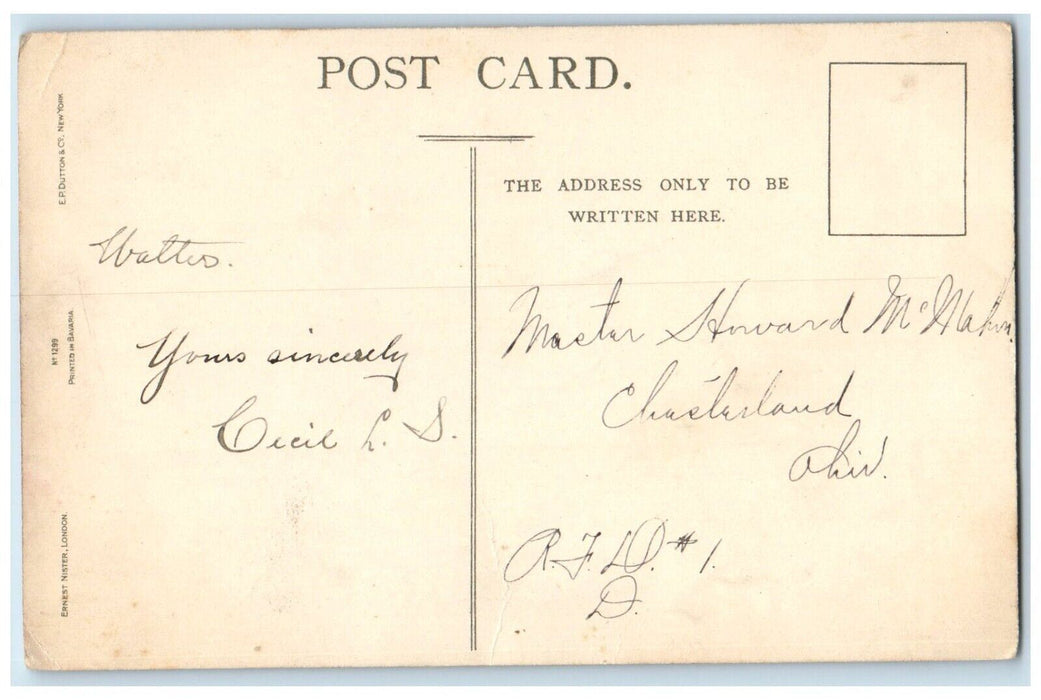 POST CARD.
THE ADDRESS ONLY TO BE
WRITTEN HERE.
E.P. DUTTON & Cº. NEW YORK
Nº 1299
PRINTED IN BAVARIA
ERNEST NISTER, LONDON.
Yours sincerely
Cecil L. S.
Master Howard McMahon
Chesterland
Ohio.
R.F.D. #1.
D.